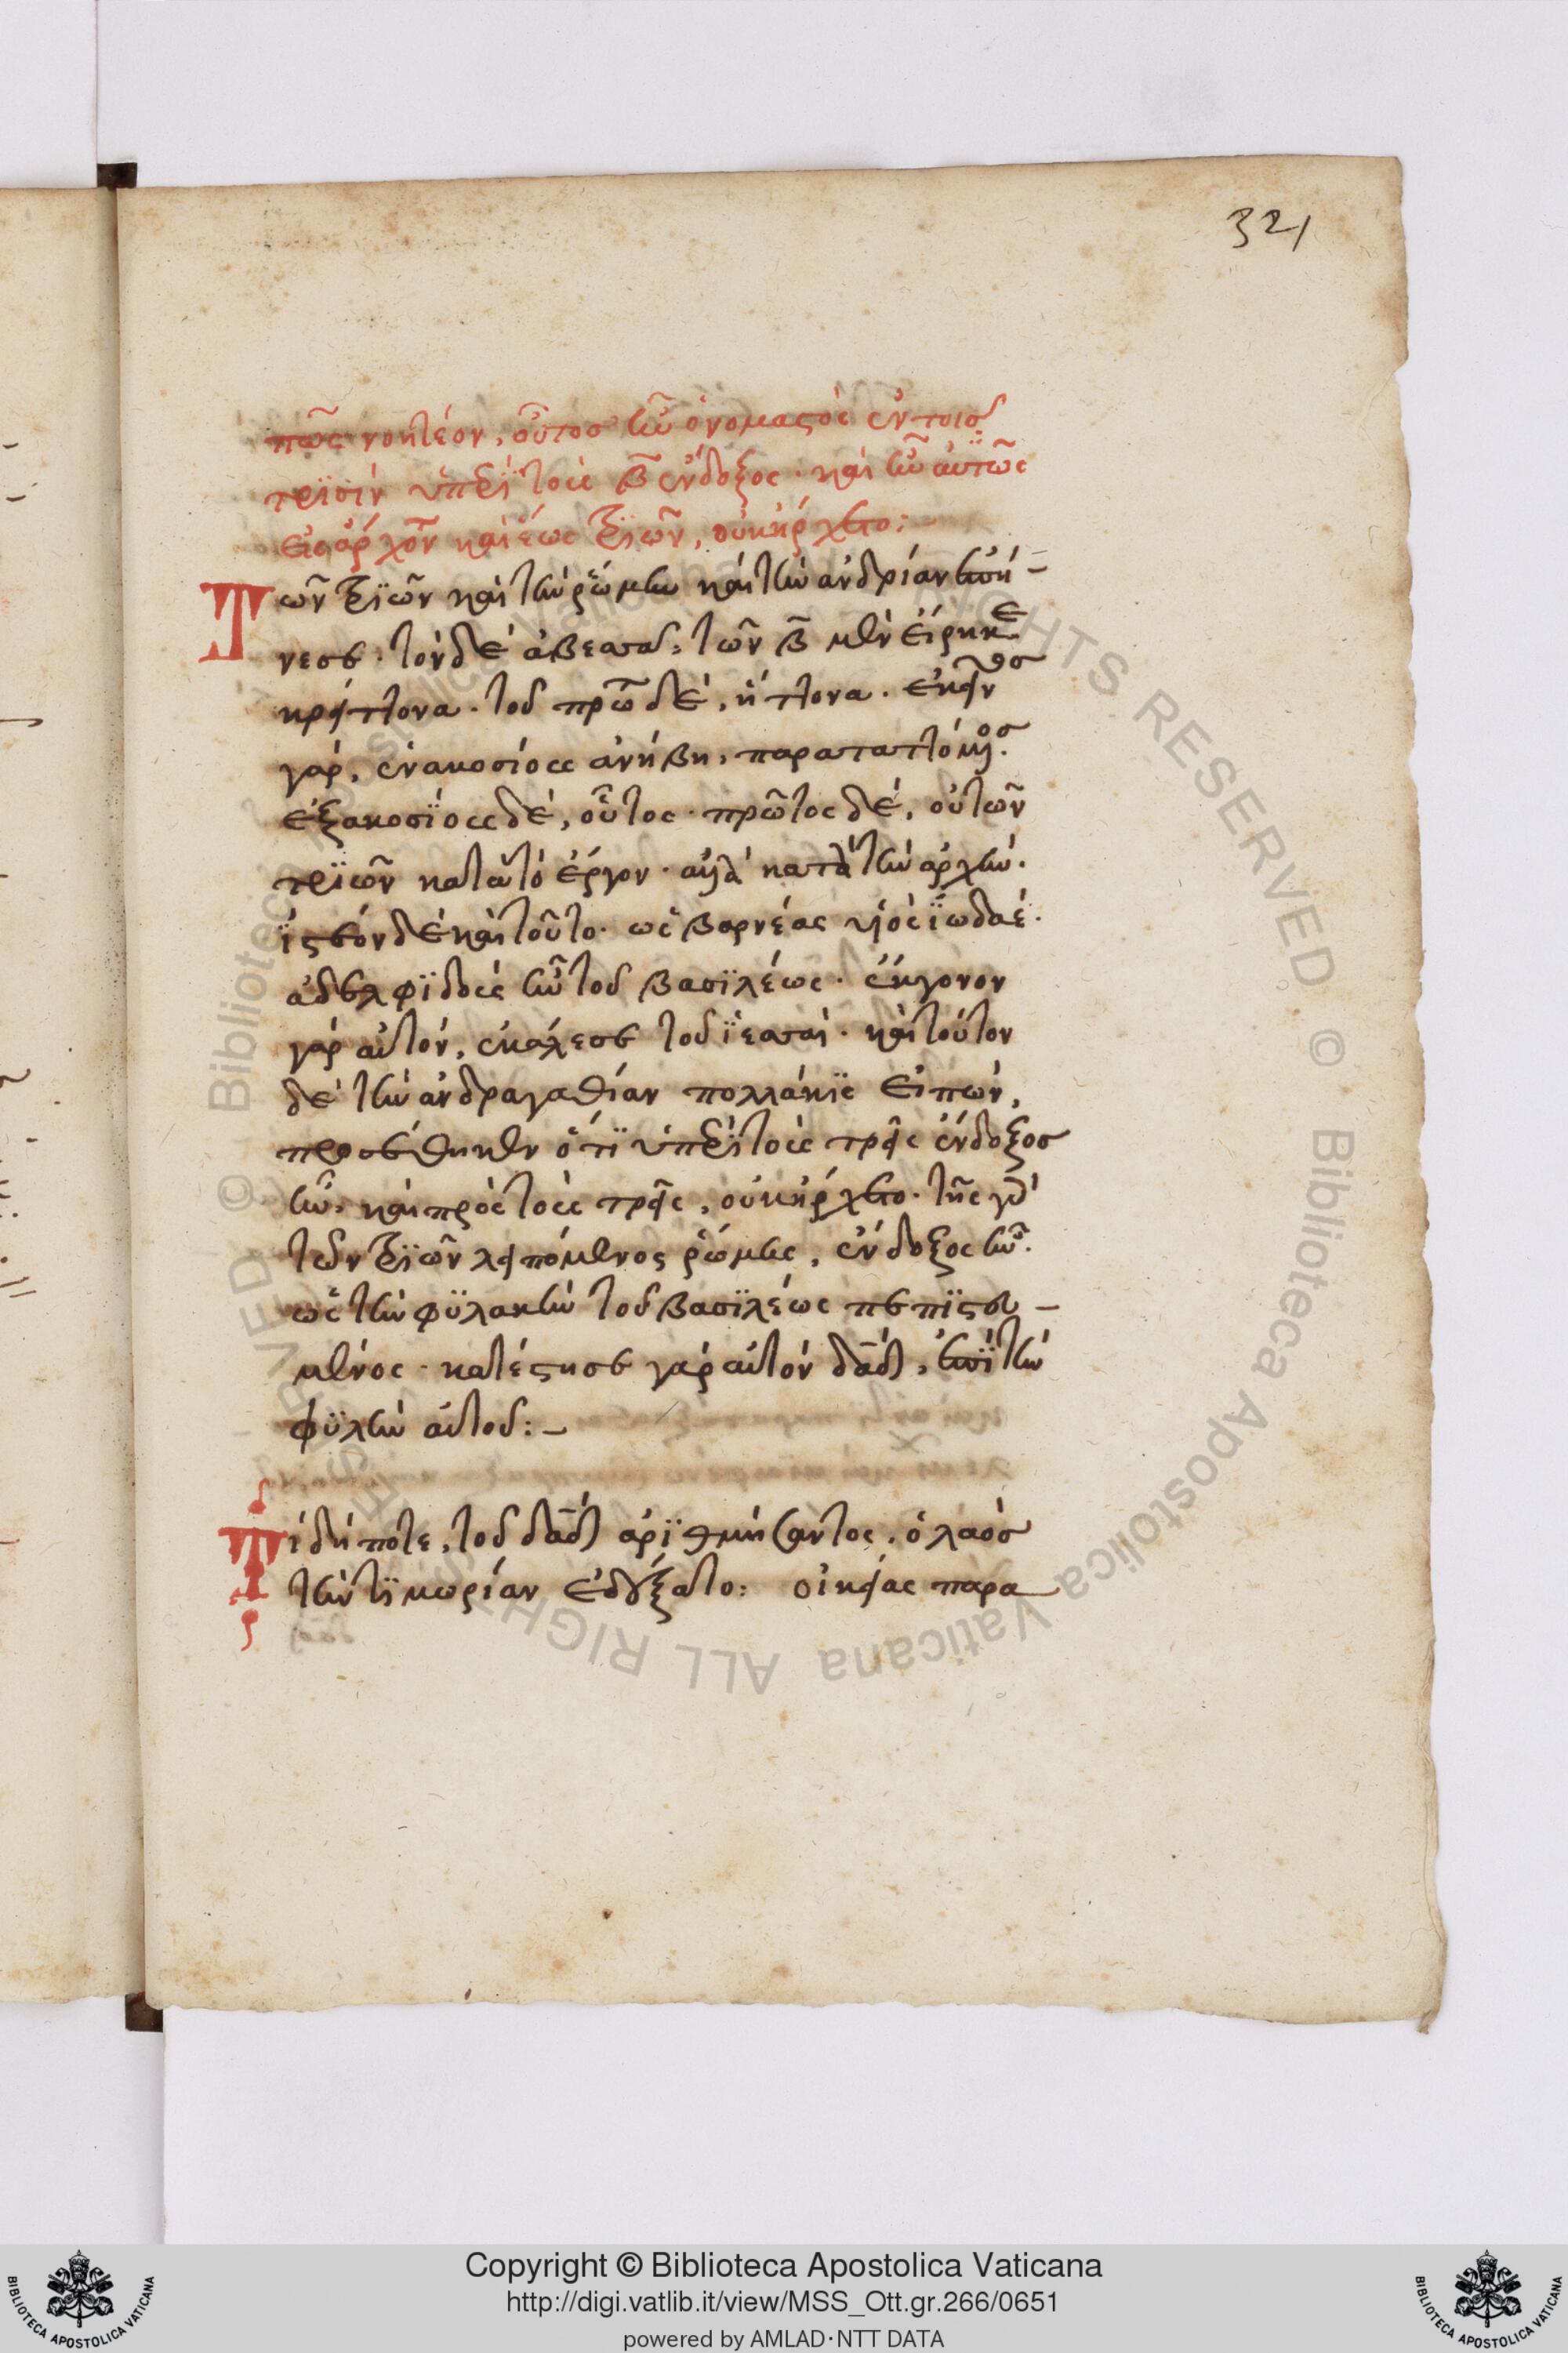 321
πῶς νοητέον, οὗτος ἦν ὀνομαστὸς ἐν τοῖς
τρϊσὶν ὑπὲρ τοὺς β̄ ἔνδοξος· καὶ ἦν αὐτῶν
εἰς ἄρχοντα καὶ ἕως τριῶν, οὐκ ἤρχετο:
Τῶν τριῶν καὶ τὴν ῥώμην καὶ τὴν ἀνδρίαν ἐπή-
νεσε· τὸν δὲ ἀβεσσὰ, τῶν β̄ μὲν εἴρηκε
κρείττονα· τοῦ πρώτου δὲ, ἥττονα· ἐκεῖνος
γὰρ, ἐνακοσίοις ἀνήβη, παραταττόμενος·
ἑξακοσϊοις δὲ, οὗτος· πρῶτος δὲ, οὐ τῶν
τρϊῶν κατὰ τὸ ἔργον· ἀλλὰ κατὰ τὴν ἀρχὴν·
ϊστέον δὲ καὶ τοῦτο· ὡς βαρνέας υἱὸς ϊωδαέ·
ἀδελφϊδοὺς ἦν τοῦ βασϊλέως· ἔκγονον
γὰρ αὐτὸν, ἐκάλεσε τοῦ ϊεσσαί· καὶ τούτου
δὲ τὴν ἀνδραγαθίαν πολλάκϊς εἰπὼν,
προστέθηκεν ὅτϊ ὑπὲρ τοὺς τρεῖς ἔνδοξος
ἦν, καὶ πρὸς τοὺς τρεῖς, οὐκ ἤρχετο· τῆς γὰρ
τῶν τριῶν λειπόμενος ῥώμης, ἔνδοξος ἦν·
ὡς τὴν φϋλακὴν τοῦ βασϊλέως πεπϊστευ-
μένος· κατέστησε γὰρ αὐτὸν δᾱδ, ἐπὶ τὴν
φϋλὴν αὐτοῦ:-
Τί δήποτε, τοῦ δᾱδ ἀρϊθμήσαντος, ὁ λαὸς
τὴν τϊμωρίαν ἐδέξατο: οἰκείας παρα
Copyright © Biblioteca Apostolica Vaticana
http://digi.vatlib.it/view/MSS_Ott.gr.266/0651
powered by AMLAD·NTT DATA
BIBLIOTECA APOSTOLICA VATICANA
BIBLIOTECA APOSTOLICA VATICANA
© Biblioteca Apostolica Vaticana ALL RIGHTS RESERVED © Biblioteca Apostolica Vaticana ALL RIGHTS RESERVED